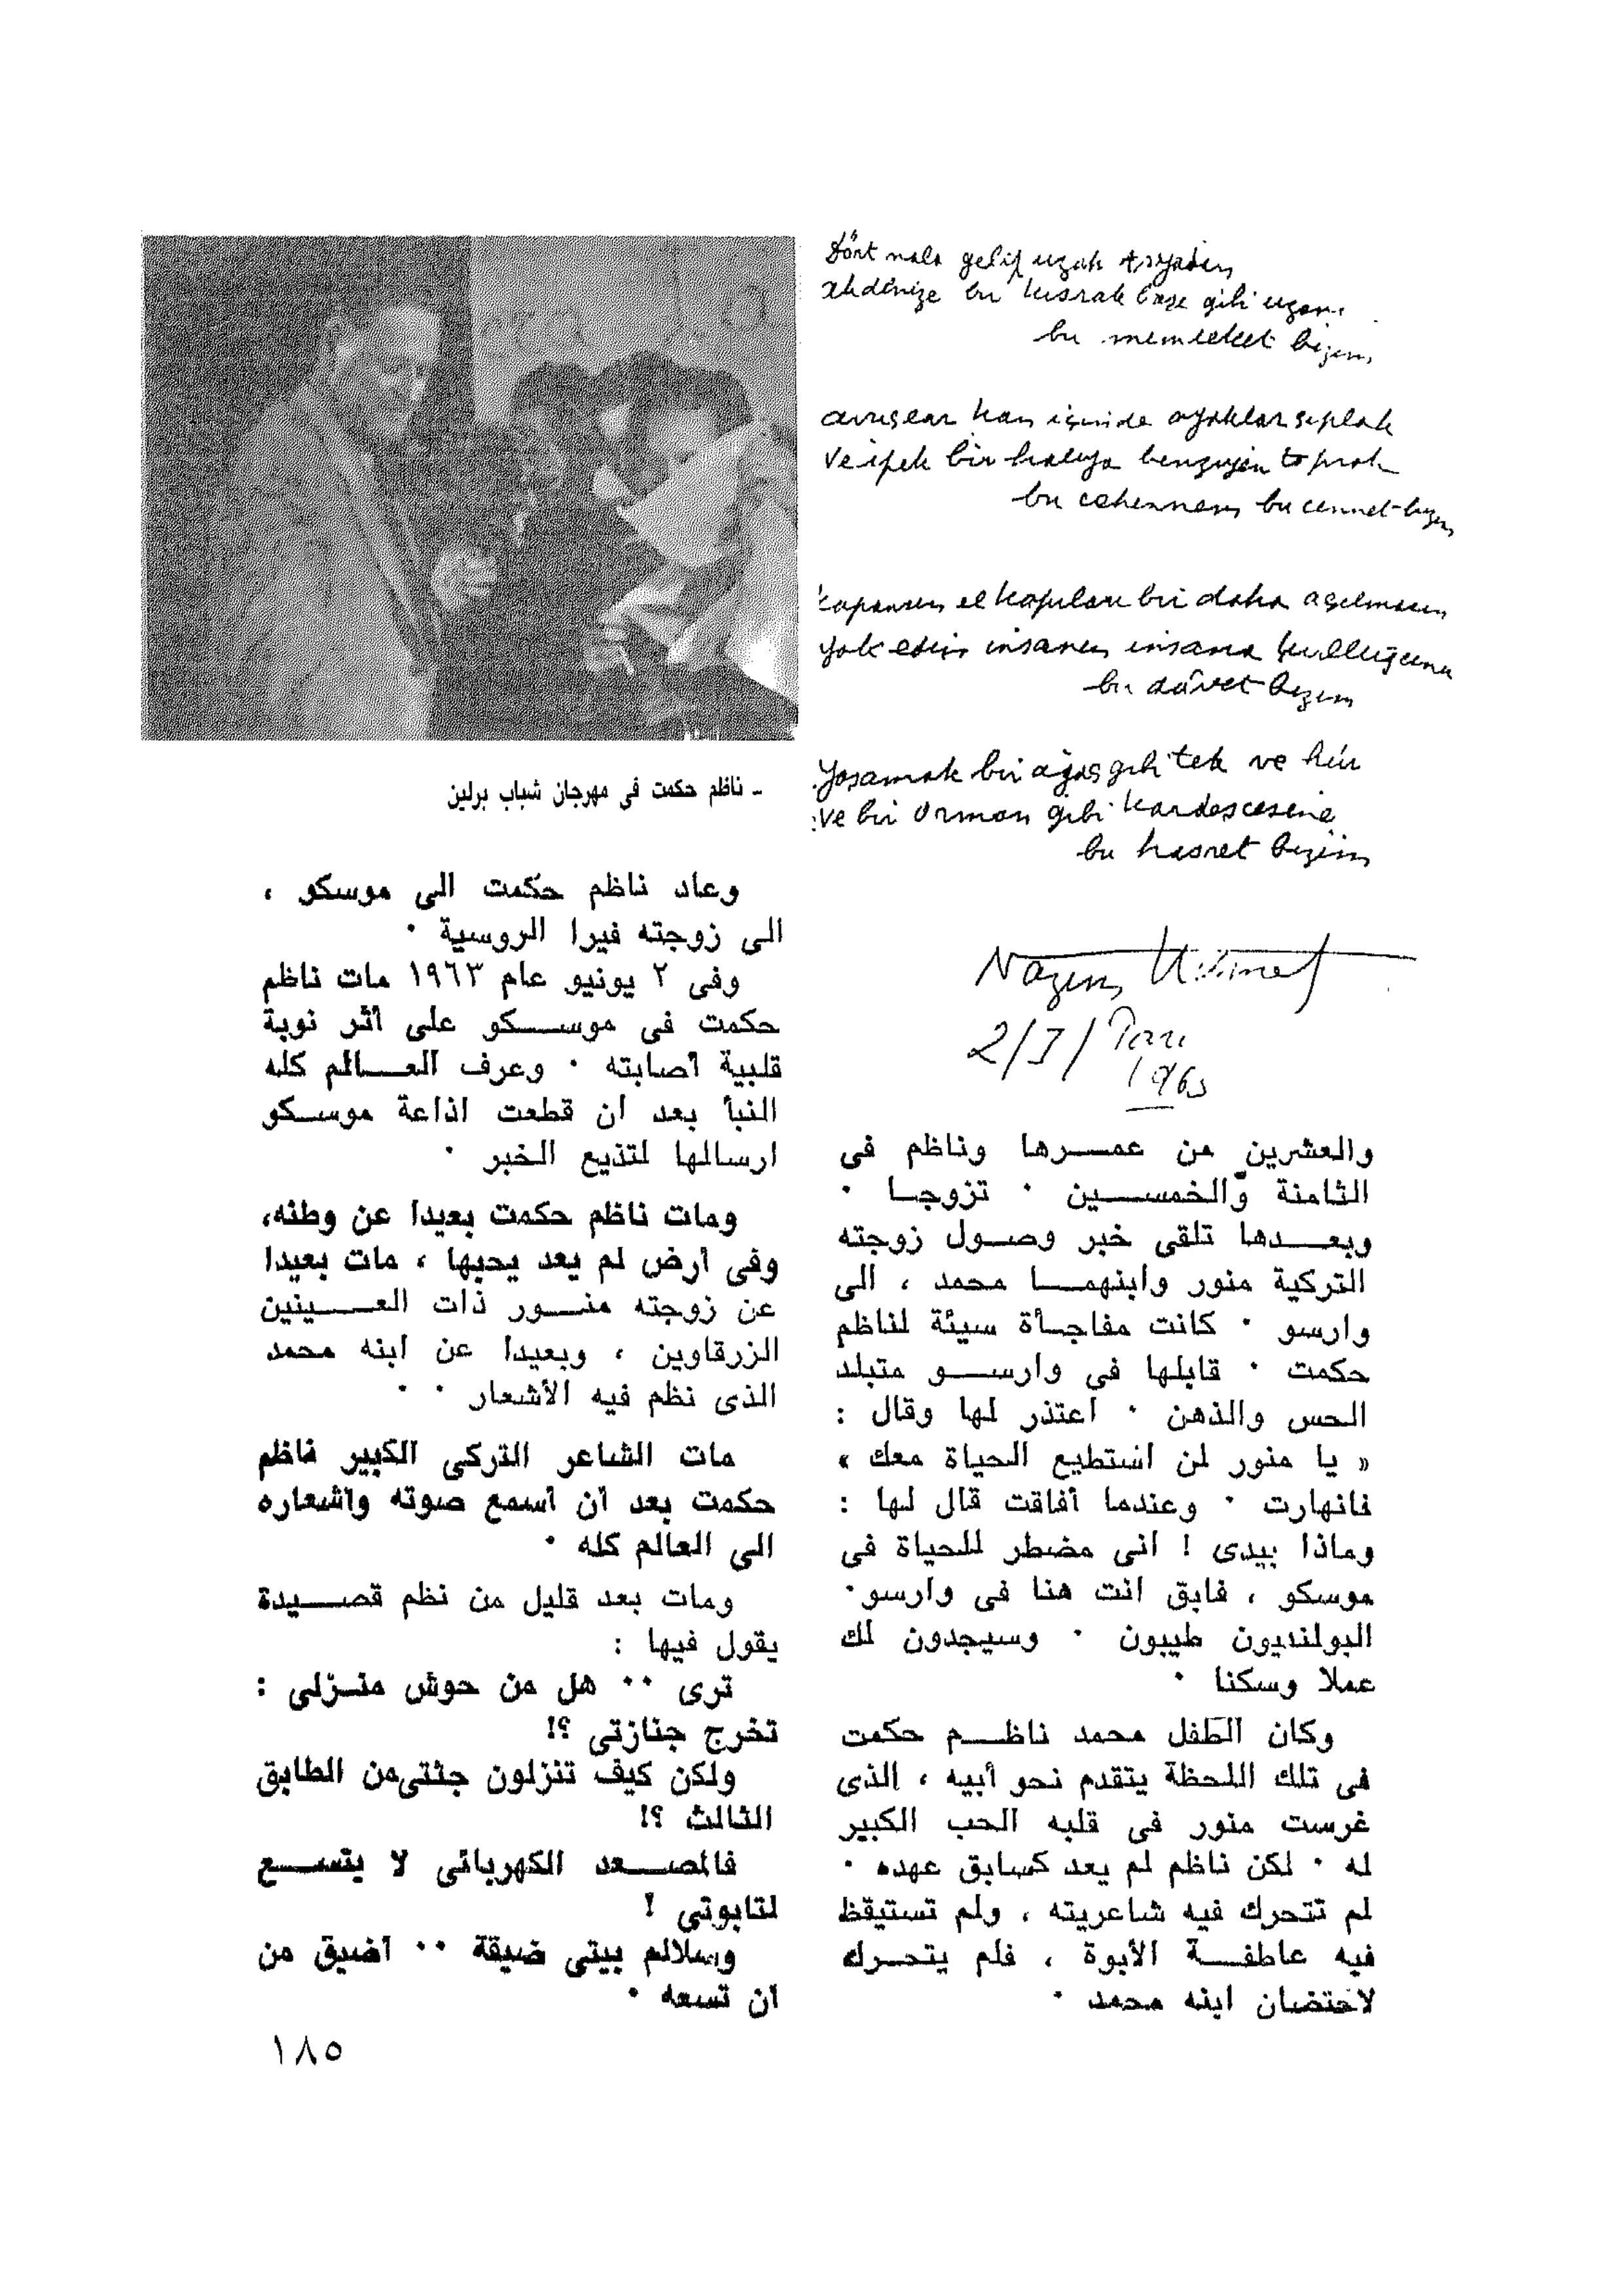 Dört nala gelip uzak Asyadan
Akdenize bir kısrak başı gibi uzanan
bu memleket bizim
kan içinde ayaklar çıplak
ve ipek bir halıya benzeyen toprak
bu cehennem bu cennet bizim
kapansın el kapıları bir daha açılmasın
yok edin insanın insana kulluğunu
bu dâvet bizim
Yaşamak bir ağaç gibi tek ve hür
ve bir orman gibi kardeşcesine
bu hasret bizim
Nazım Hikmet
2/I/
1963
والعشرين من عمــرها وناظم فى
الثامنة والخمســين ٠ تزوجــا ٠
وبعــدها تلقى خبر وصــول زوجته
التركية منور وابنهمــا محمد ، الى
وارسو ٠ كانت مفاجــأة سيئة لناظم
حكمت ٠ قابلها فى وارســو متبلد
الحس والذهن ٠ اعتذر لها وقال :
« يا منور لن استطيع الحياة معك »
فانهارت ٠ وعندما أفاقت قال لها :
وماذا بيدى ! انى مضطر للحياة فى
موسكو ، فابق انت هنا فى وارسو٠
البولنديون طيبون ٠ وسيجدون لك
عملا وسكنا ٠
وكان الطفل محمد ناظــم حكمت
فى تلك اللحظة يتقدم نحو أبيه ، الذى
غرست منور فى قلبه الحب الكبير
له ٠ لكن ناظم لم يعد كسابق عهده ٠
لم تتحرك فيه شاعريته ، ولم تستيقظ
فيه عاطفــة الأبوة ، فلم يتحــرك
لاحتضان ابنه محمد ٠
ـ ناظم حكمت فى مهرجان شباب برلين
وعاد ناظم حكمت الى موسكو ،
الى زوجته فيرا الروسية ٠
وفى ٢ يونيو عام ١٩٦٣ مات ناظم
حكمت فى موســكو على أثر نوبة
قلبية أصابته ٠ وعرف العــالم كله
النبأ بعد أن قطعت اذاعة موســكو
ارسالها لتذيع الخبر ٠
ومات ناظم حكمت بعيدا عن وطنه،
وفى أرض لم يعد يحبها ، مات بعيدا
عن زوجته منــور ذات العــينين
الزرقاوين ، وبعيدا عن ابنه محمد
الذى نظم فيه الأشعار ٠ ٠
مات الشاعر التركى الكبير ناظم
حكمت بعد أن أسمع صوته وأشعاره
الى العالم كله ٠
ومات بعد قليل من نظم قصــيدة
يقول فيها :
ترى ٠٠ هل من حوش منــزلى :
تخرج جنازتى ؟!
ولكن كيف تنزلون جثتى من الطابق
الثالث ؟!
فالمصــعد الكهربائى لا يتســع
لتابوتى !
وسلالم بيتى ضيقة ٠٠ أضيق من
أن تسعه ٠
١٨٥